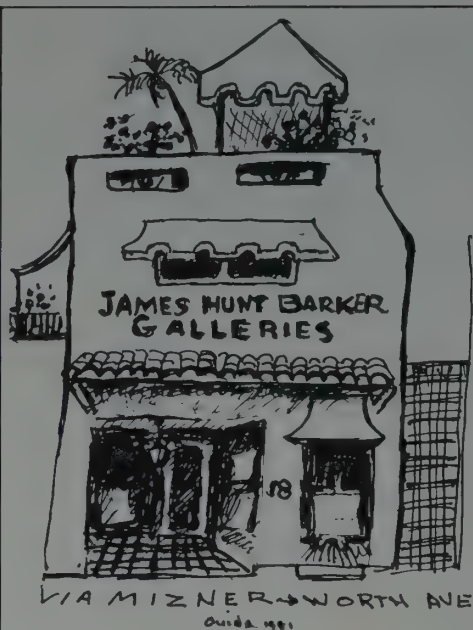 JAMES HUNT BARKER
GALLERIES
18
VIA MIZNER→WORTH AVE
Ouida 1981